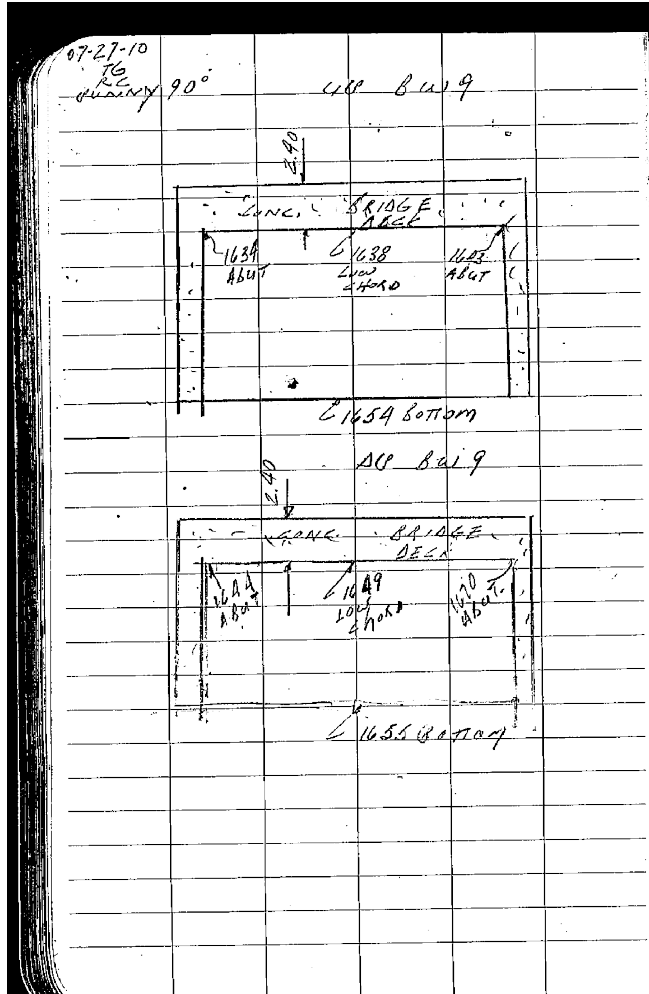 07-27-10
TG
RC
SUNNY 90°
UP BW 9
2.40
CONC. BRIDGE
DECK
1634
ABUT
1638
LOW
CHORD
1603
ABUT
1654 BOTTOM
DP BW 9
2.40
CONC. BRIDGE
DECK
1644
ABUT
1649
LOW
CHORD
1670
ABUT.
1655 BOTTOM